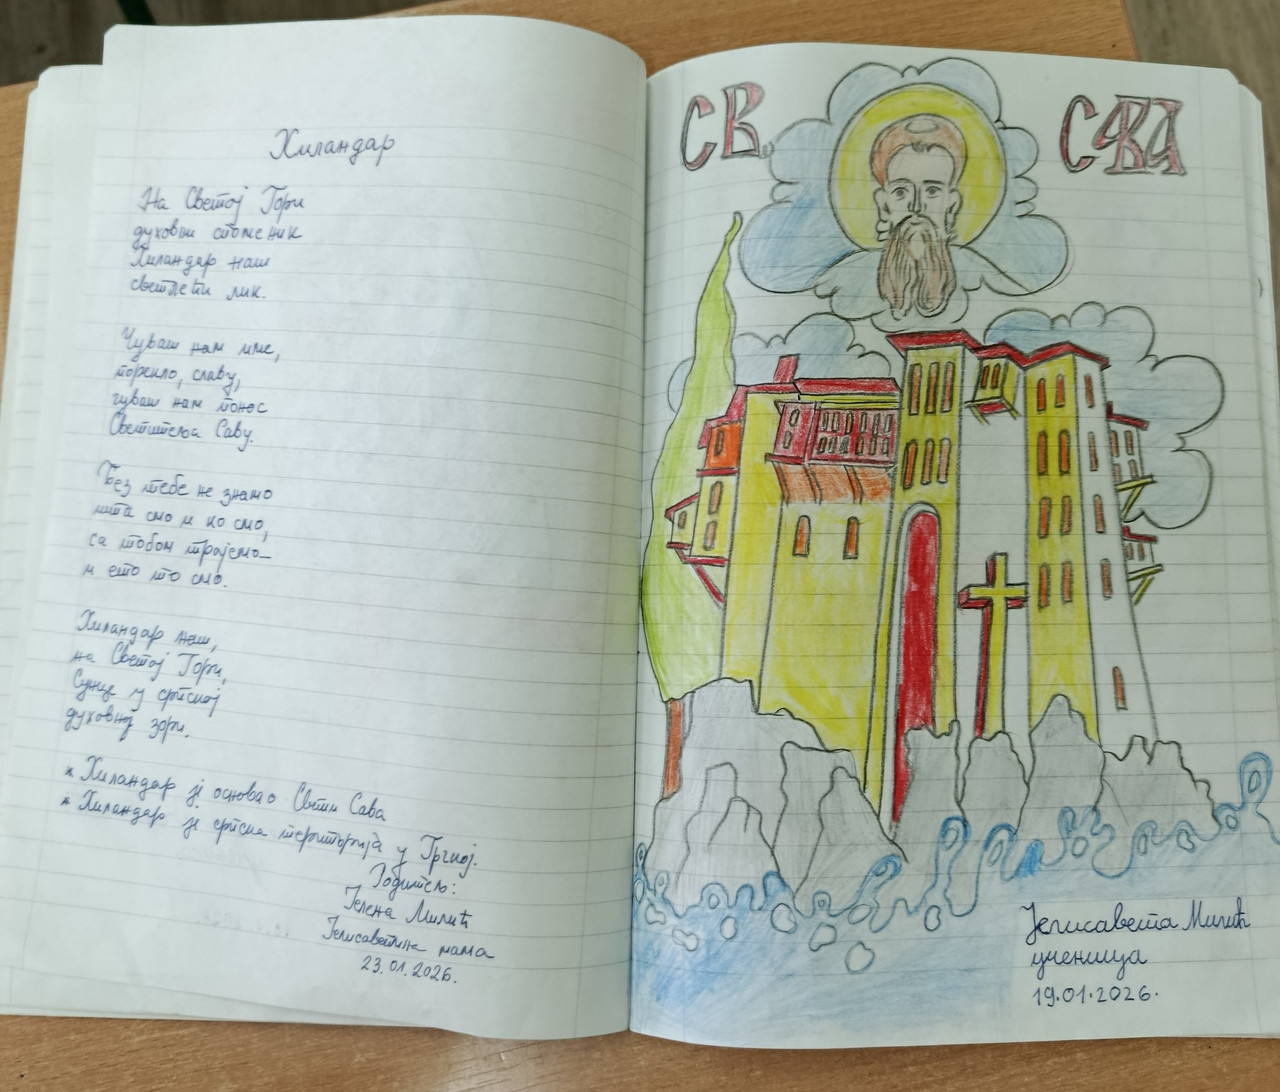 Хиландар
На Светој Гори
духовни споменик
Хиландар наш
светлећи лик.
Чуваш нам име,
порекло, славу,
чуваш нам понос
Светитеља Саву.
Без тебе не знамо
шта смо и ко смо,
са тобом трајемо
и ето то смо.
Хиландар наш,
на Светој Гори,
Сунце у српској
духовној зори.
* Хиландар је основао Свети Сава
* Хиландар је српска територија у Грчкој.
Родитељ:
Јелена Милић
Јелисаветина мама
23.01.2026.
СВ. САВА
Јелисавета Милић
ученица
19.01.2026.